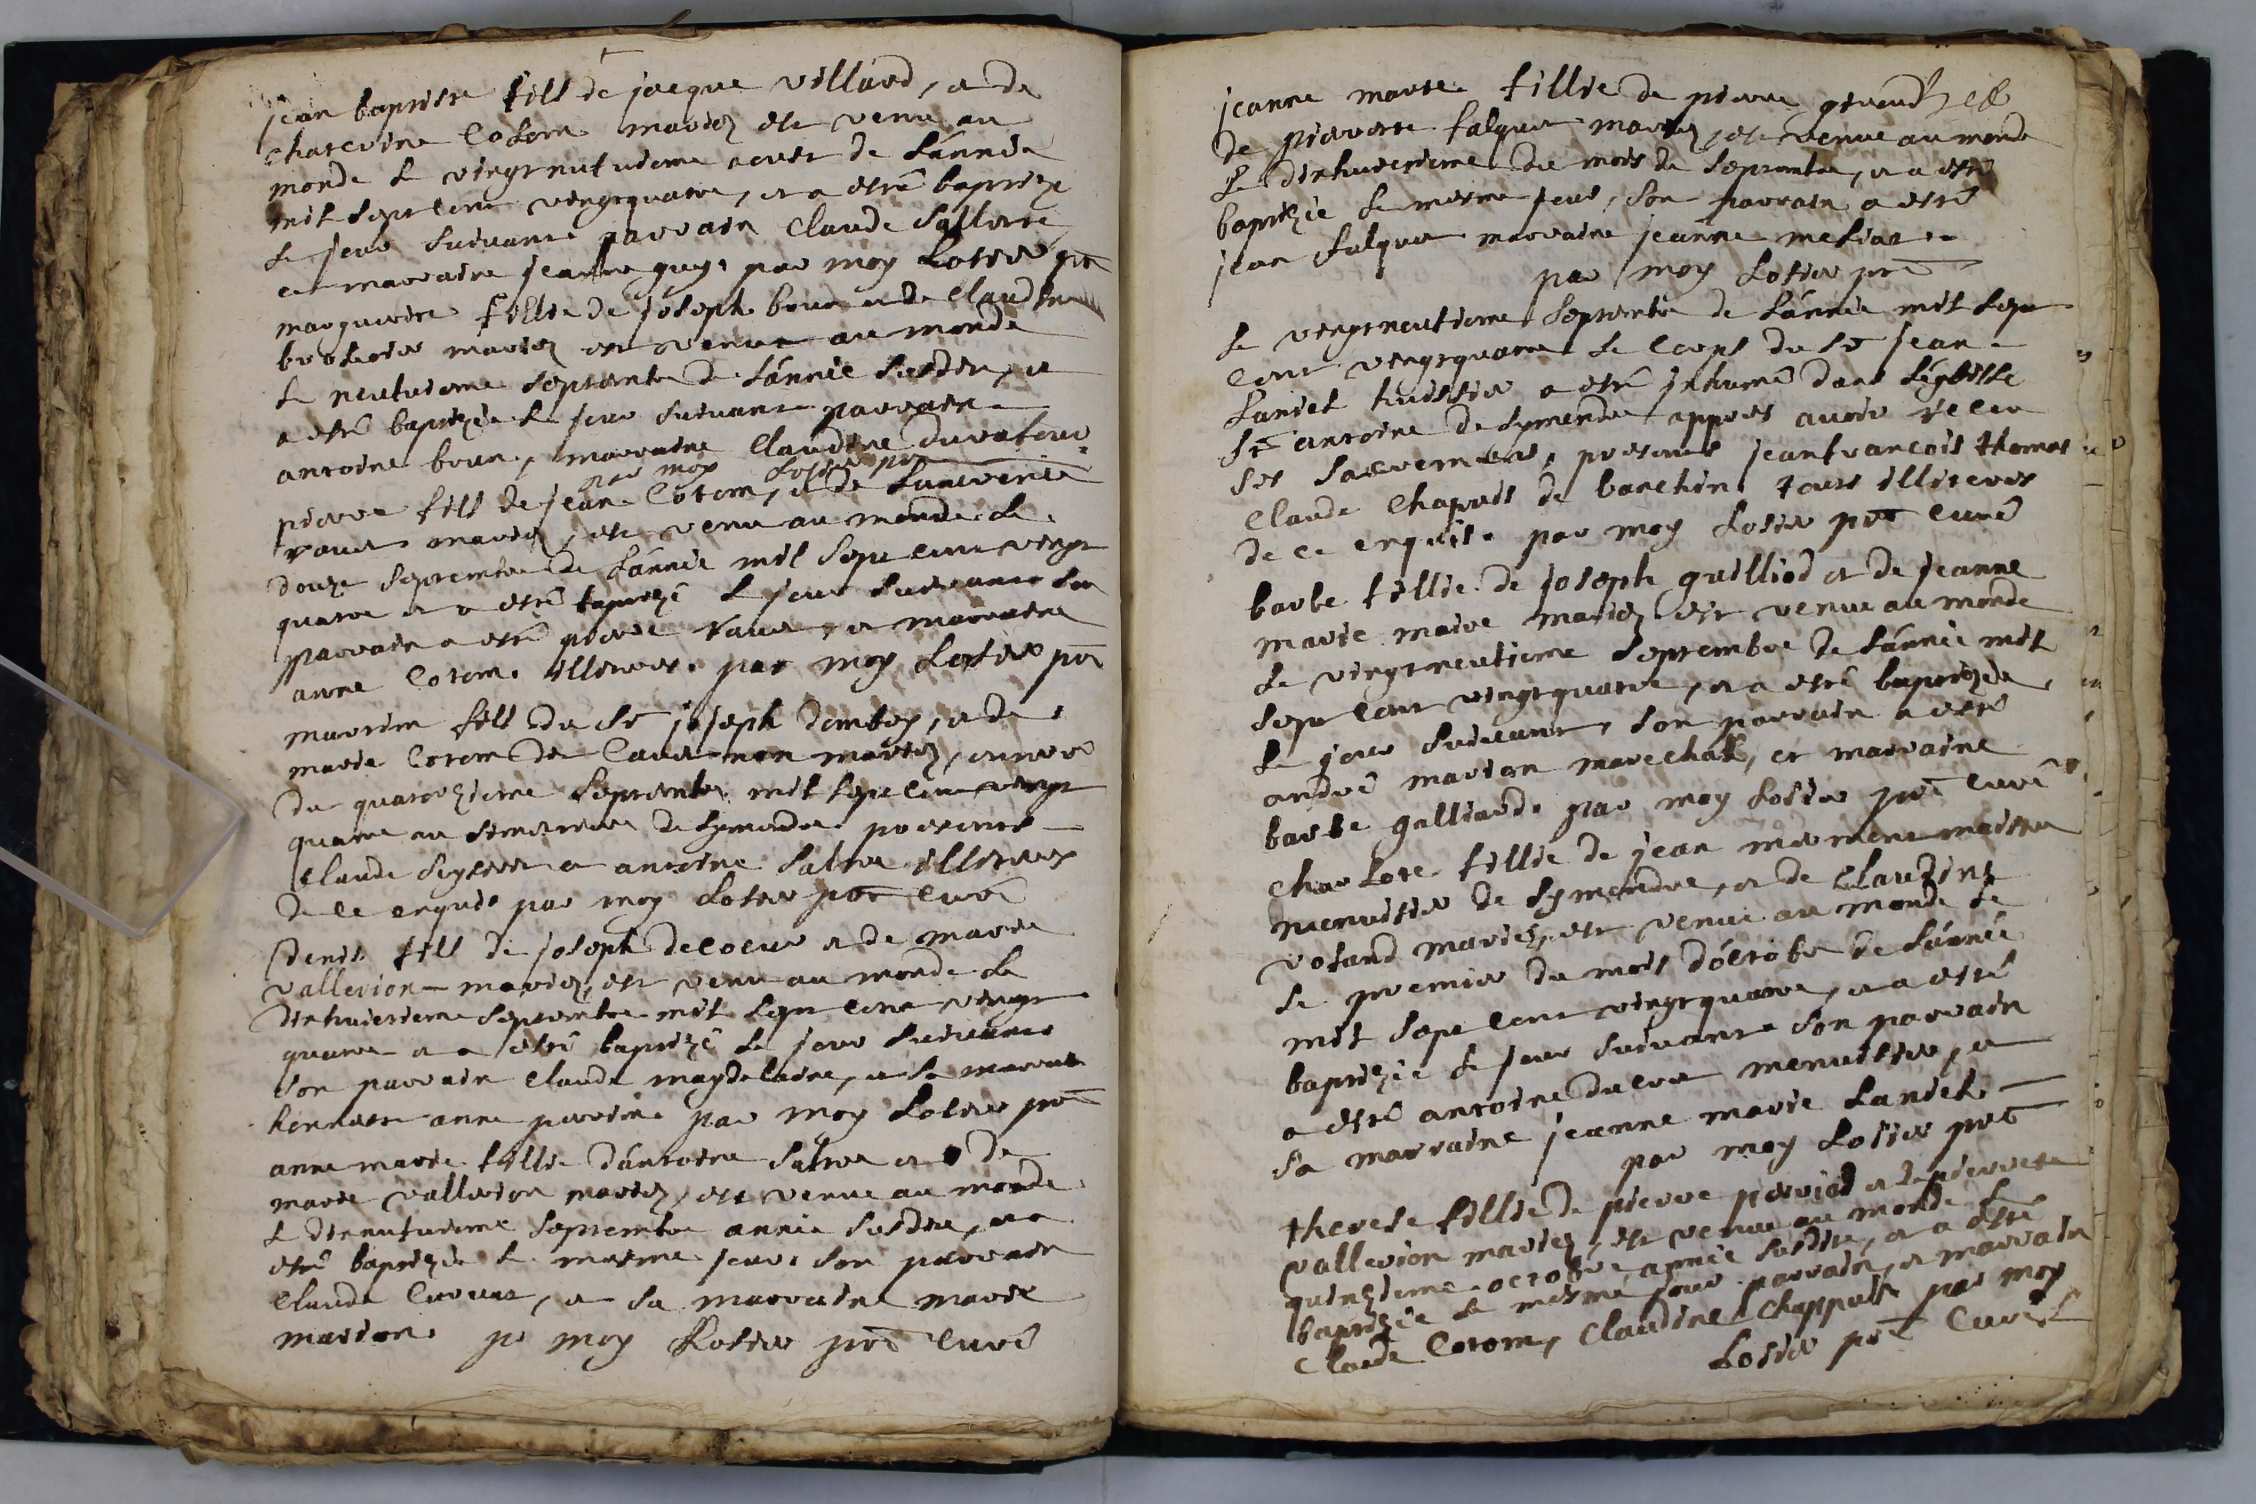 jean baptiste fils de jacque villard, et de
Cotom mariez est venu au
monde le vingtneufvieme aoust de L'année
mil sept cent vingtquatre, et a estré baptizé
le jour suivant parrain Claude
et marraine jeanne guy, par moy Losier pre
marguerite fillie de joseph boun et de Claudine
mariez est venue au monde
le neufvieme septembre de L'année susditte, et
a estré baptizée le jour suivant parrain
antoine boun, marraine Claudine
par moy Losier pre
pierre fils de jean Cotom, et de
mariez, est venu au monde le
douze septembre de L'année mil sept cent vingt
quatre et a estré baptizé le jour suivant son
parrain a estré pierre et marraine
anne Cotom. illiterez. par moy Losier pre
fils du Sr joseph dombey, et de
marie Cotom de mariez, enterré
du quatorzieme septembre mil sept cent vingt
quatre au de Symandre presents
Claude et antoine illiterez
de ce enquis par moy Losier pre curé
denis fils de joseph decoeur et de marie
vallerion mariez, est venu au monde le
dixhuictieme septembre mil sept cent vingt
quatre et a estré baptizé le jour suivant
son parrain Claude magdelaine, et sa
anne par moy Losier pre
anne marie fillie d'antoine et de
marie vallerion mariez, est venue au monde
le dixneufvieme septembre année susditte, et a
estré baptizée le mesme jour, son parrain
Claude et sa marraine marie
marion. pr moy Losier pre curé
jeanne marie fillie de pierre et
de pierrette falque mariez, est venue au monde
le dixhuictieme du mois de septembre, et a estré
baptizée le mesme jour, son parrain a estré
jean falque marraine jeanne
par moy Losier pre
le vingtneufieme septembre de L'année mil sept
cent vingtquatre le corps du Sr jean
Laniel huissier a estré inhumé dans L'église
St antoine de Symandre appres avoir receu
ses sacrements, presents jean françois thomas et
Claude Chapuis de tous illiterez
de ce enquis. par moy Losier pre curé
barbe fillie de joseph guilliod et de jeanne
marie maire mariez est venue au monde
le vingtneufieme septembre de L'année mil
sept cent vingtquatre, et a estré baptizée
le jour suivant, son parrain a estré
andré marion marechal, et marraine
barbe galliande par moy Losier pre curé
Charlote fillie de jean maistre
menuisier de Symandre, et de Claudine
mariez, est venue au monde le
le premier du mois d'octobre de L'année
mil sept cent vingtquatre, et a estré
baptizée le jour suivant son parrain
a estré antoine menuisier, et
sa marraine jeanne marie Laniel
par moy Losier pre
therese fillie de pierre et de pierrette
vallerion mariez, est venue au monde le
quinzieme octobre, année susditte, et a estré
baptizée le mesme jour parrain, et marraine
Claude Cotom, Claudine Chappuis par moy
Losier pre curé